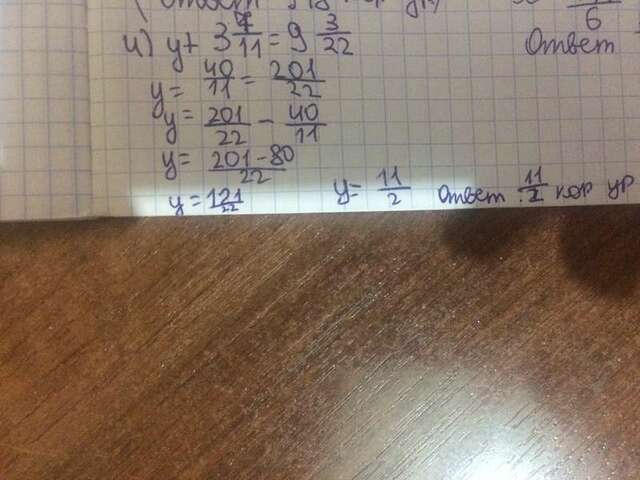 и) y+ 3 7/11 = 9 3/22
Ответ
6
y = 40/11 = 201/22
y = 201/22 - 40/11
y = 201-80/22
y = 121/22 y = 11/2 Ответ: 11/2 кор ур